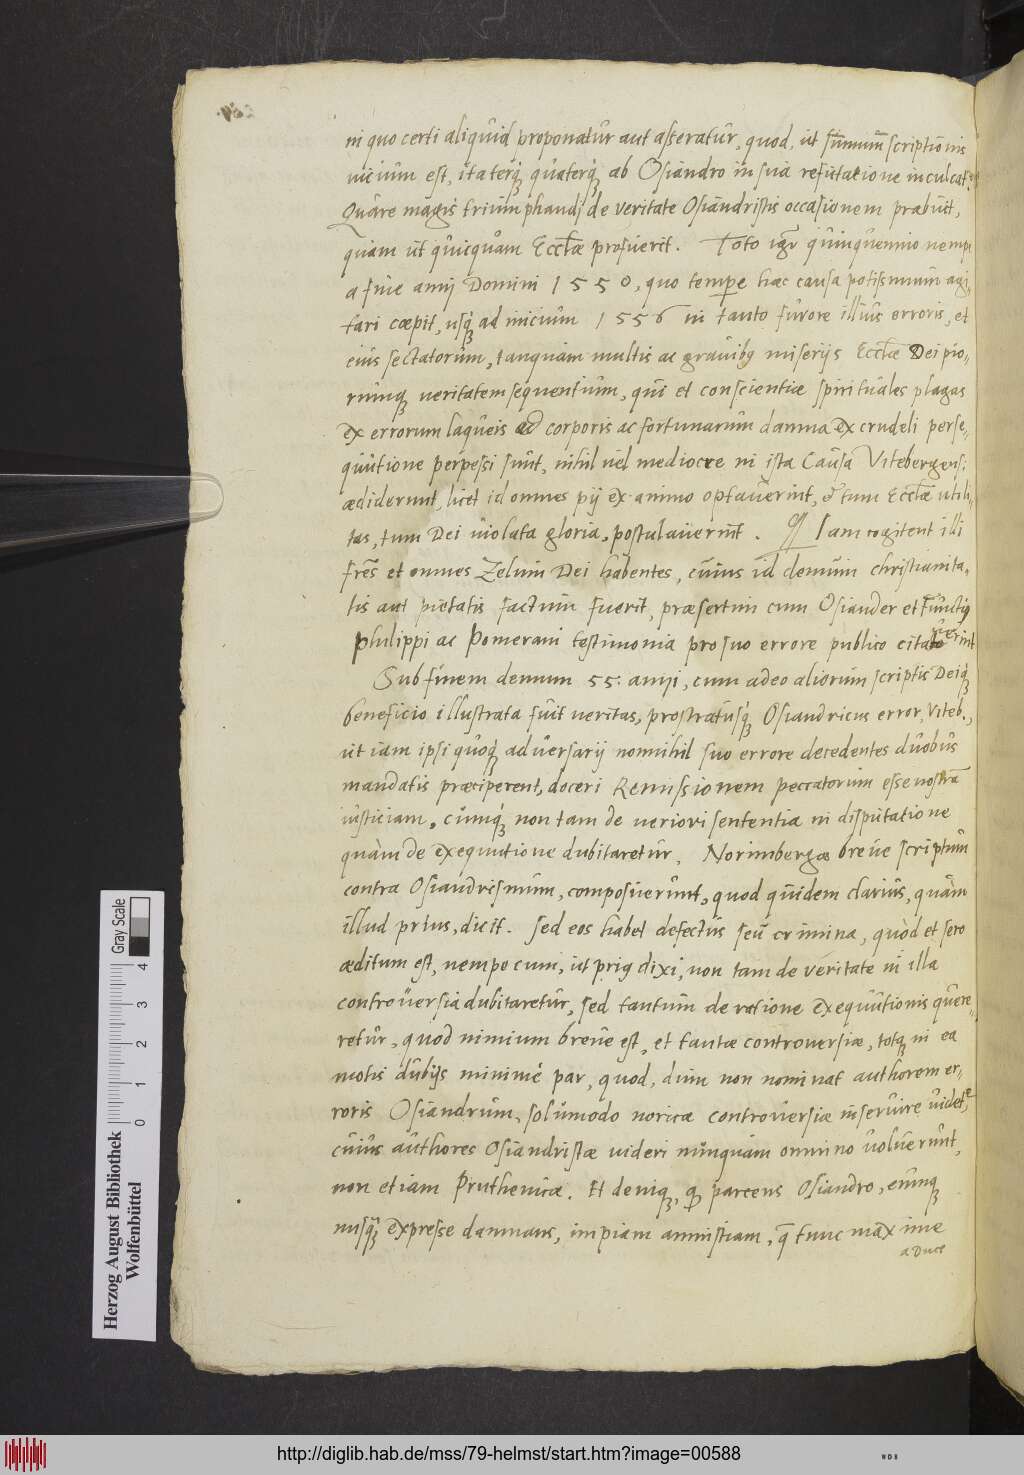 in quo certi aliquid proponatur aut asseratur, quod, ut sūmum scriptionis
uicium est, ita terq́ quaterq́ ab Osiandro in sua refutatione inculcat.
Quare magis triumphandi de veritate Osiandristis occasionem præbuit,
quam ut quicquam Eccłæ profuerit. Toto igr̄ quinquennio nempe
a fine annj Domini 1550, quo tempore hæc causa potissimum agi-
tari cœpit, usq́ ad inicium 1556 in tanto furore illius erroris, et
eius sectatorum, tanquam multis ac grauibꝫ miserijs Eccłæ Dei pio-
rumqꝫ ueritatem sequentium, qui et conscientiæ spirituales plagas
ex errorum laqueis ac corporis ac fortunarum damna ex crudeli perse-
quutione perpessi sunt, nihil uel mediocre in ista Causa Vitebergens:
ædiderunt, licet id omnes pij ex animo optauerint, & tum Eccłæ utili-
tas, tum Dei uiolata gloria, postulauerint. Iam cogitent illi
frēs et omnes Zelum Dei habentes, cuius id demum christianita-
tis aut pietatis factum fuerit, præsertim cum Osiander et Functiꝰ
Philippi ac Pomerani testimonia pro suo errore publico citauerint
Sub finem demum 55. annj, cum adeo aliorum scriptis Deiq́
beneficio illustrata fuit ueritas, prostratusq́ Osiandricus error, Viteb.,
ut iam ipsi quoq́ aduersarij nonnihil suo errore decedentes duobus
mandatis præciperent, doceri Remissionem peccatorum esse nostrā
iusticiam, cumq́ non tam de ueriori sententia in disputatione
quàm de exequutione dubitaretur, Norimbergæ breue scriptum
contra Osiandrismum, composuerunt, quod quidem clarius, quàm
illud prius, dicit. Sed eos habet defectus seu crimina, quòd et sero
æditum est, nempe cum, ut priꝰ dixi, non tam de veritate in illa
controuersia dubitaretur, sed tantum de ratione exequutionis quere-
retur, quod nimium breue est, et tantæ controuersiæ, totqꝫ in ea
motis dubijs minimè par, quod, dum non nominat authorem er-
roris Osiandrum, solummodo noricæ controuersiæ inseruire uidetr
cuius authores Osiandristæ uideri nunquam omnino uoluerunt,
non etiam Pruthenicæ. Et deniqꝫ, qꝫ parcens Osiandro, eumqꝫ
nusqꝫ expresse damnans, impiam amnistiam, q̄ tunc maxime
a Duce
Herzog August Bibliothek
Wolfenbüttel
Gray Scale
0 1 2 3 4
http://diglib.hab.de/mss/79-helmst/start.htm?image=00588
WDB